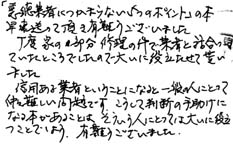 「悪徳業者につかまらない5つのポイント」の本
早速送って頂き有難うございました。
丁度家の部分修理の件で業者と話合っ
ていたところでしたので大いに役立たせて貰い
ました
信用ある業者ということになると一般の人にとって
難しい問題です こうして判断の手助けに
なる本があることは そういう人にとっては大いに役立
つことでしょう、有難うございました。